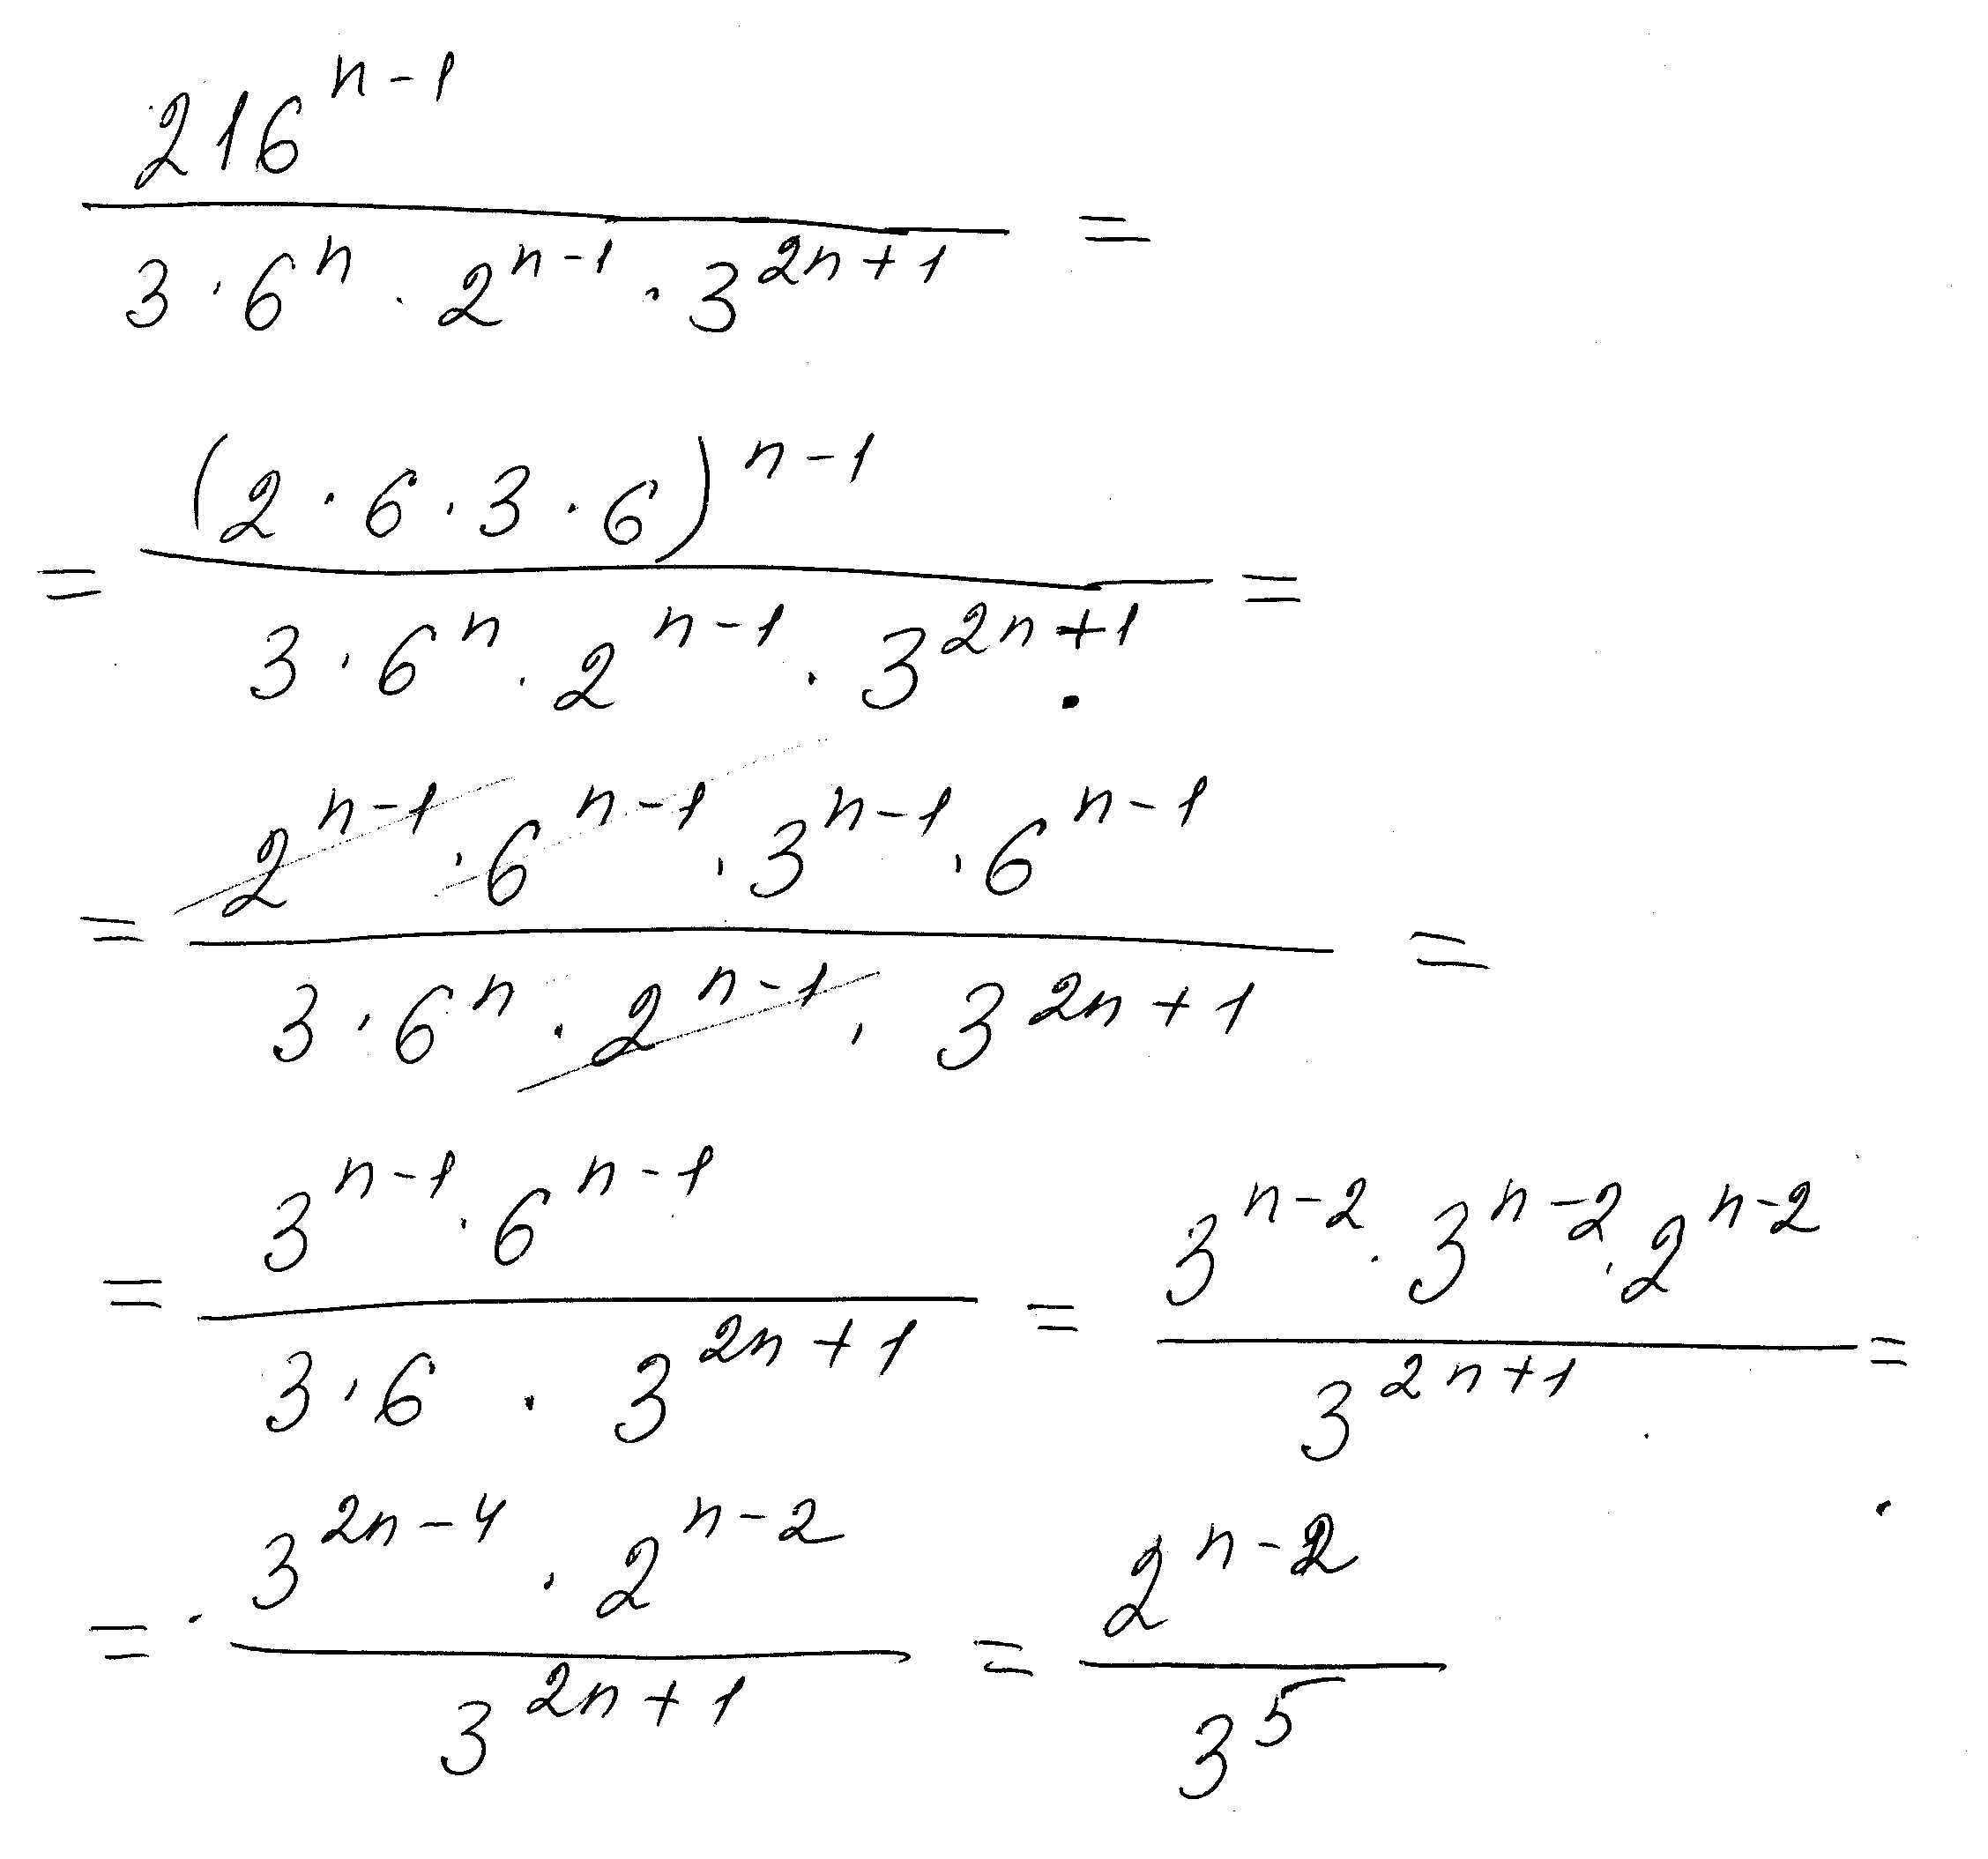 216^{n-1} / (3 · 6^n · 2^{n-1} · 3^{2n+1}) =
= (2 · 6 · 3 · 6)^{n-1} / (3 · 6^n · 2^{n-1} · 3^{2n+1}) =
= 2^{n-1} · 6^{n-1} · 3^{n-1} · 6^{n-1} / (3 · 6^n · 2^{n-1} · 3^{2n+1}) =
= 3^{n-1} · 6^{n-1} / (3 · 6 · 3^{2n+1}) = 3^{n-2} · 3^{n-2} · 2^{n-2} / 3^{2n+1} =
= 3^{2n-4} · 2^{n-2} / 3^{2n+1} = 2^{n-2} / 3^5